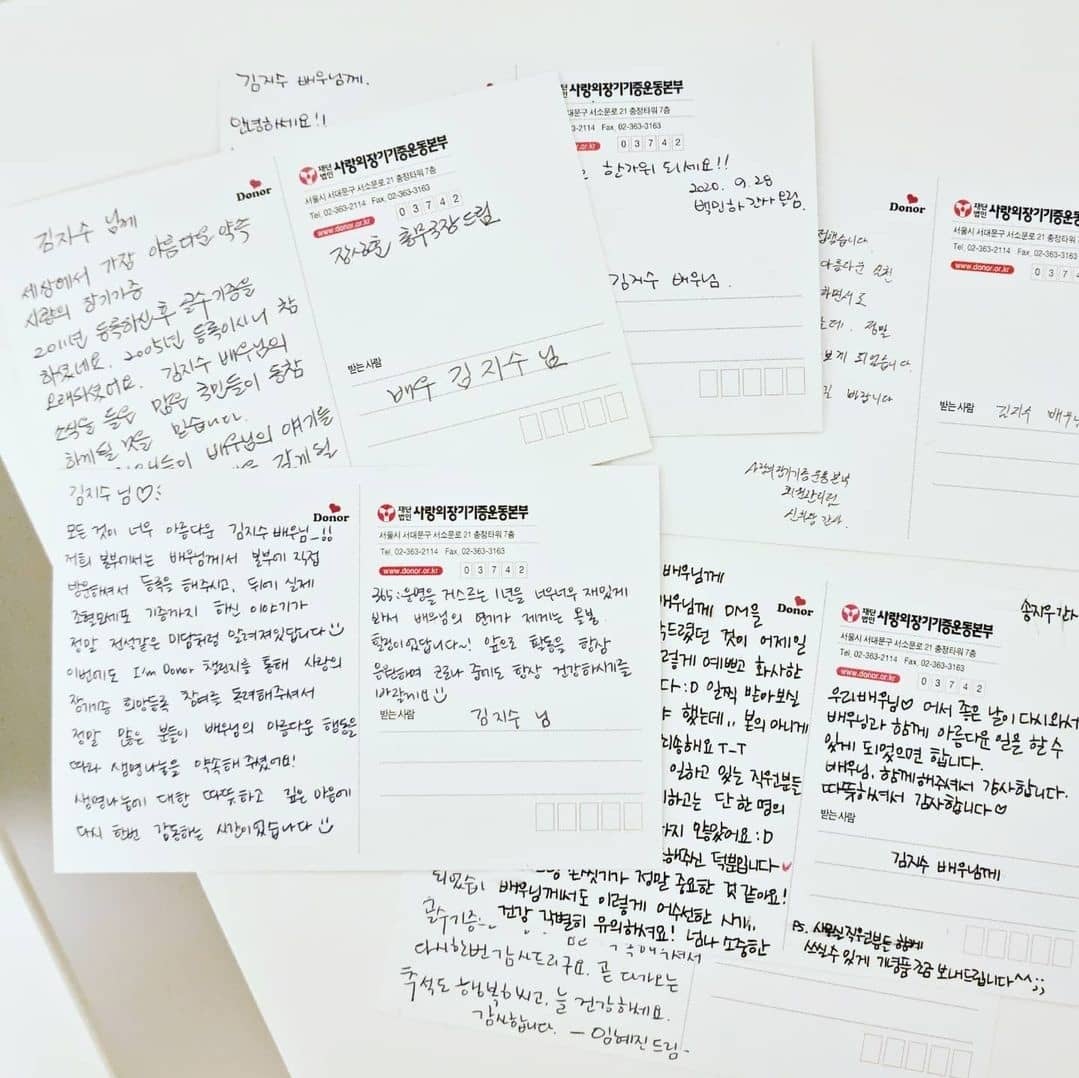 김지수 배우님께.
안녕하세요!!
사랑의장기기증운동본부
서대문구 서소문로 21 충정타워 7층
3-2114 Fax. 02-363-3163
0 3 7 4 2
한가위 되세요!!
2020. 9. 28
백민하 간사 드림.
김지수 배우님.
Donor
김지수 님께
세상에서 가장 아름다운 약속
사랑의 장기기증
2011년 등록하신 후 골수기증을
하셨네요. 2005년 등록이시니 참
오래되셨어요. 김지수 배우님의
소식을 들은 많은 국민들이 동참
하게될 것을 믿습니다.
배우님의 얘기를
갖게될
재단법인 사랑의장기기증운동본부
서울시 서대문구 서소문로 21 충정타워 7층
Tel. 02-363-2114 Fax. 02-363-3163
www.donor.or.kr 0 3 7 4 2
총무국장 드림
받는사람
배우 김지수 님
Donor
다름다운 소식
하면서 로
는데. 정말
보게 되었습니다
바랍니다
재단법인 사랑의장기기증운동본부
서울시 서대문구 서소문로 21 충정타워
Tel. 02-363-2114 Fax. 02-363-3163
www.donor.or.kr 0 3 7 4
받는사람 김지수 배우님
사랑의장기기증운동본부
회원관리팀
간사.
김지수 님♡:
Donor
모든 것이 너무 아름다운 김지수 배우님_!!
저희 본부에서는 배우님께서 본부에 직접
방문하셔서 등록을 해주시고, 뒤에 실제
조혈모세포 기증까지 하신 이야기가
정말 전설같은 미담처럼 알려져있답니다
이번에도 I'm Donor 챌린지를 통해 사랑의
장기기증 희망등록 참여를 독려해주셔서
정말 많은 분들이 배우님의 아름다운 행동을
따라 생명나눔을 약속해 주셨어요!
생명나눔에 대한 따뜻하고 깊은 마음에
다시 한번 감동하는 시간이었습니다
재단법인 사랑의장기기증운동본부
서울시 서대문구 서소문로 21 충정타워 7층
Tel. 02-363-2114 Fax. 02-363-3163
www.donor.or.kr 0 3 7 4 2
365:운명을 거스르는 1년을 너무너무 재밌게
봐서 배우님의 연기가 제게는 몬불
앞으로 활동을 항상
응원하며 코로나 중에도 항상 건강하시기를
바랄게요!
받는사람 김지수 님
배우님께
Donor
배우님께 DM을
드렸던 것이 어제일
렇게 예쁘고 화사한
다:D 일찍 받아보실
야 했는데,, 본의 아니게
죄송해요 T-T
일하고 있는 직원분들
하고는 단 한 명의
까지 안왔어요:D
해주신 덕분입니다
손씻기가 정말 중요한 것 같아요!
배우님께서도 이렇게 어수선한 시기,
건강 각별히 유의하셔요! 넘나 소중한
송지우간사
재단법인 사랑의장기기증운동본부
서울시 서대문구 서소문로 21 충정타워 7층
Tel. 02-363-2114 Fax. 02-363-3163
www.donor.or.kr 0 3 7 4 2
우리배우님♡ 어서 좋은 날이 다시와서
배우님과 함께 아름다운 일을 할 수
있게 되었으면 합니다.
배우님, 함께해주셔서 감사합니다.
따뜻하셔서 감사합니다♡
받는사람
김지수 배우님께
PS. 직원분들
쓰실수 있게 개명품 조금 보내드립니다^^;;
되었습
골수기증
다시한번 감사드리구요. 곧 다가오는
추석도 행복하시고, 늘 건강하세요.
감사합니다. - 임혜진 드림-